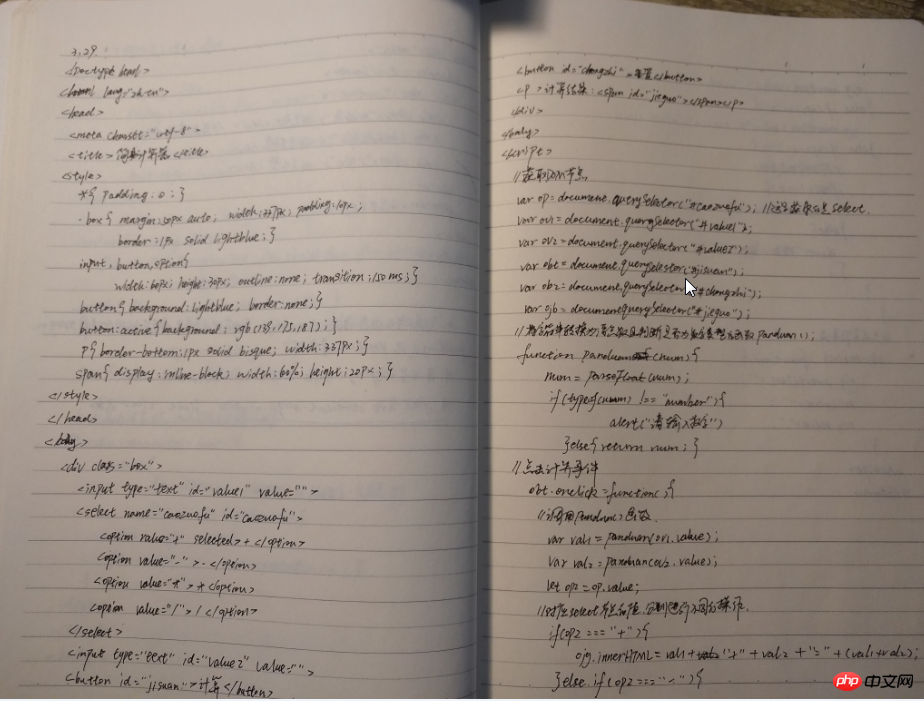 3.29.
<!Doctype html>
<html lang="zh-en">
<head>
<meta charset="utf-8">
<title>简易计算器</title>
<style>
*{ padding: 0 ; }
.box{ margin:50px auto; width:337px; padding:10px;
border:1px solid lightblue; }
input, button,option{
width:60px; height:30px; outline:none; transition:150ms; }
button{ background:lightblue; border:none; }
button:active{ background: rgb(188,175,187); }
P{ border-bottom:1px solid bisque; width:337px; }
span{ display:inline-block; width:60%; height:20px; }
</style>
</head>
<body>
<div class="box">
<input type="text" id="value1" value="">
<select name="caozuofu" id="caozuofu">
<option value="+" selected>+</option>
<option value="-">-</option>
<option value="*">*</option>
<option value="/">/</option>
</select>
<input type="text" id="value2" value="">
<button id="jisuan">计算</button>
<button id="chongzhi">重置</button>
<p>计算结果:<span id="jieguo"></span></p>
</div>
</body>
<script>
//获取DOM节点
var op=document.querySelector("#caozuofu"); //这是获取的是select.
var ov1=document.querySelector("#value1");
var ov2=document.querySelector("#value2");
var obt=document.querySelector("#jisuan");
var ob2=document.querySelector("#chongzhi");
var ojb=document.querySelector("#jieguo");
//将字符串转换为浮点数且判断是否为数字类型的函数panduan();
function panduan(num){
num=parseFloat(num);
if(typeof(num) !== "number"){
alert("请输入数字")
}else{ return num; }
//点击计算事件
obt.onclick=function(){
//调用panduan()函数.
var val1=panduan(ov1.value);
var val2=panduan(ov2.value);
let op2=op.value;
//对应select节点的值,分别进行不同的操作.
if(op2==="+"){
ojg.innerHTML=val1+"+"+val2+"="+(val1+val2);
}else if(op2==="-"){
php 中文网